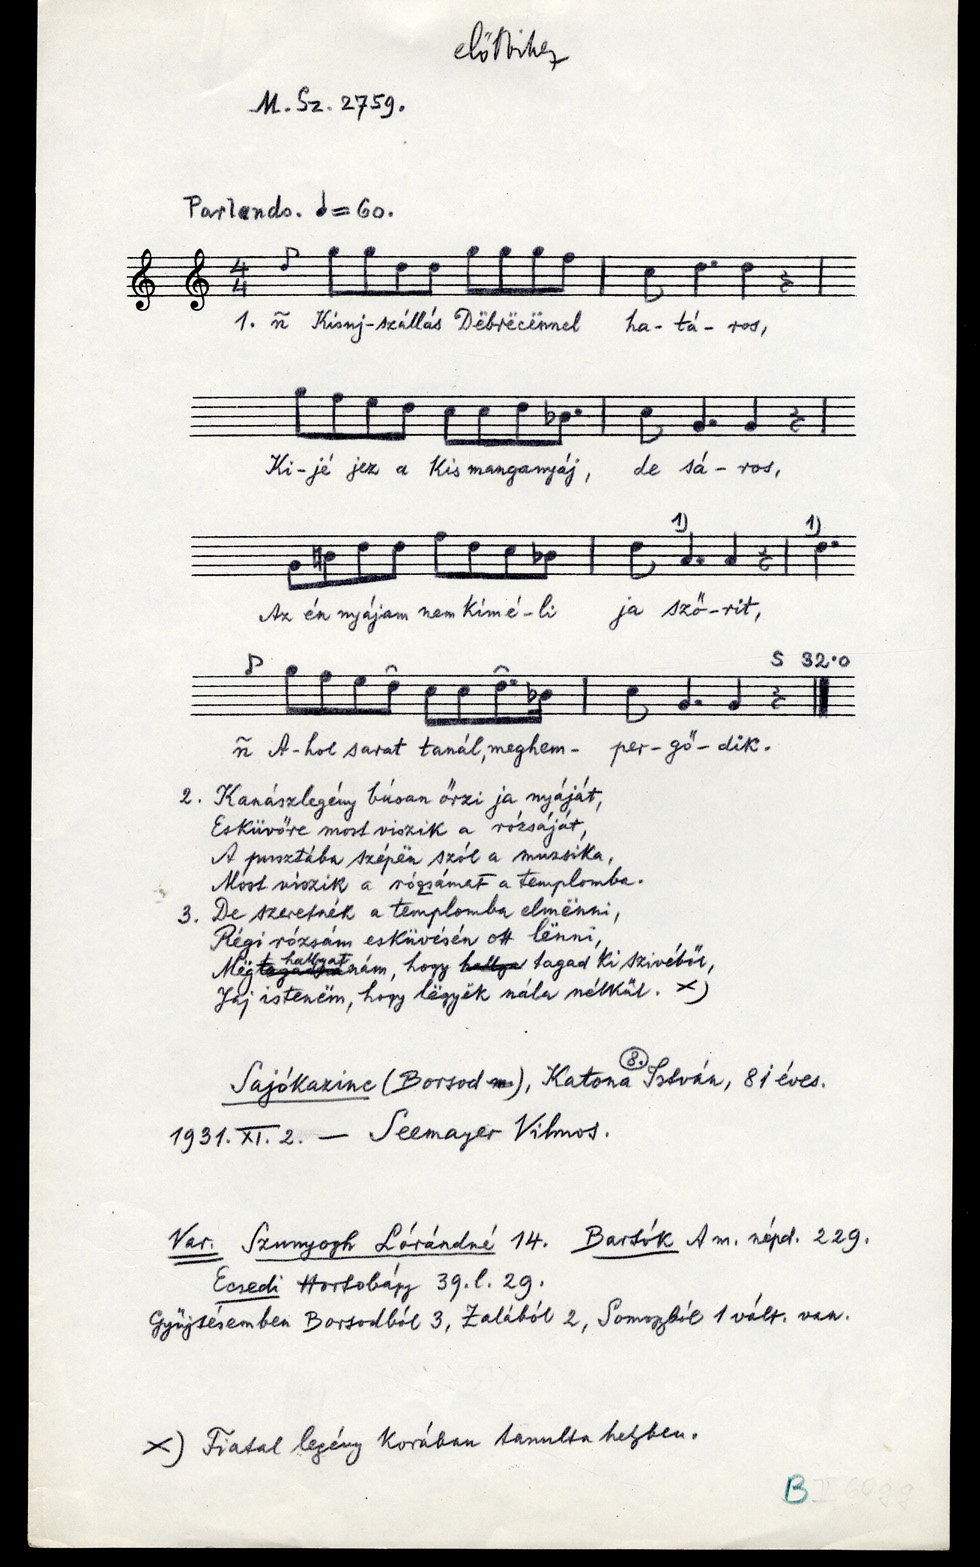 előbbihez
M. Sz. 2759.
Parlando. = 60.
4
4
1. ñ Kisuj-szállás Dëbrëcënnel ha-tá-ros,
Ki-jé jez a Kis manganyáj, de sá-ros,
1) 1)
Az én nyájam nem kímé-li ja sző-rit,
S 32·0
ñ A-hol sarat tanál, meghem-per-gő-dik.
2. Kanászlegény búsan őrzi ja nyáját,
Esküvőre most viszik a rózsáját,
A pusztába szépën szól a muzsika,
Most viszik a rózsámat a templomba.
3. De szeretnék a templomba elmënni,
Régi rózsám esküvésén ott lënni,
Mëghallgatnám, hogy tagad ki szivéből,
Jáj istenëm, hogy lëgyëk nála nélkül. x)
8.
Sajókazinc (Borsod m.), Katona István, 81 éves.
1931. XI. 2. — Seemayer Vilmos.
Var. Szunyogh Lórándné 14. Bartók A m. népd. 229.
Ecsedi Hortobágy 39. l. 29.
Gyüjtésemben Borsodból 3, Zalából 2, Somogyból 1 vált. van.
x) Fiatal legény korában tanulta helyben.
B II